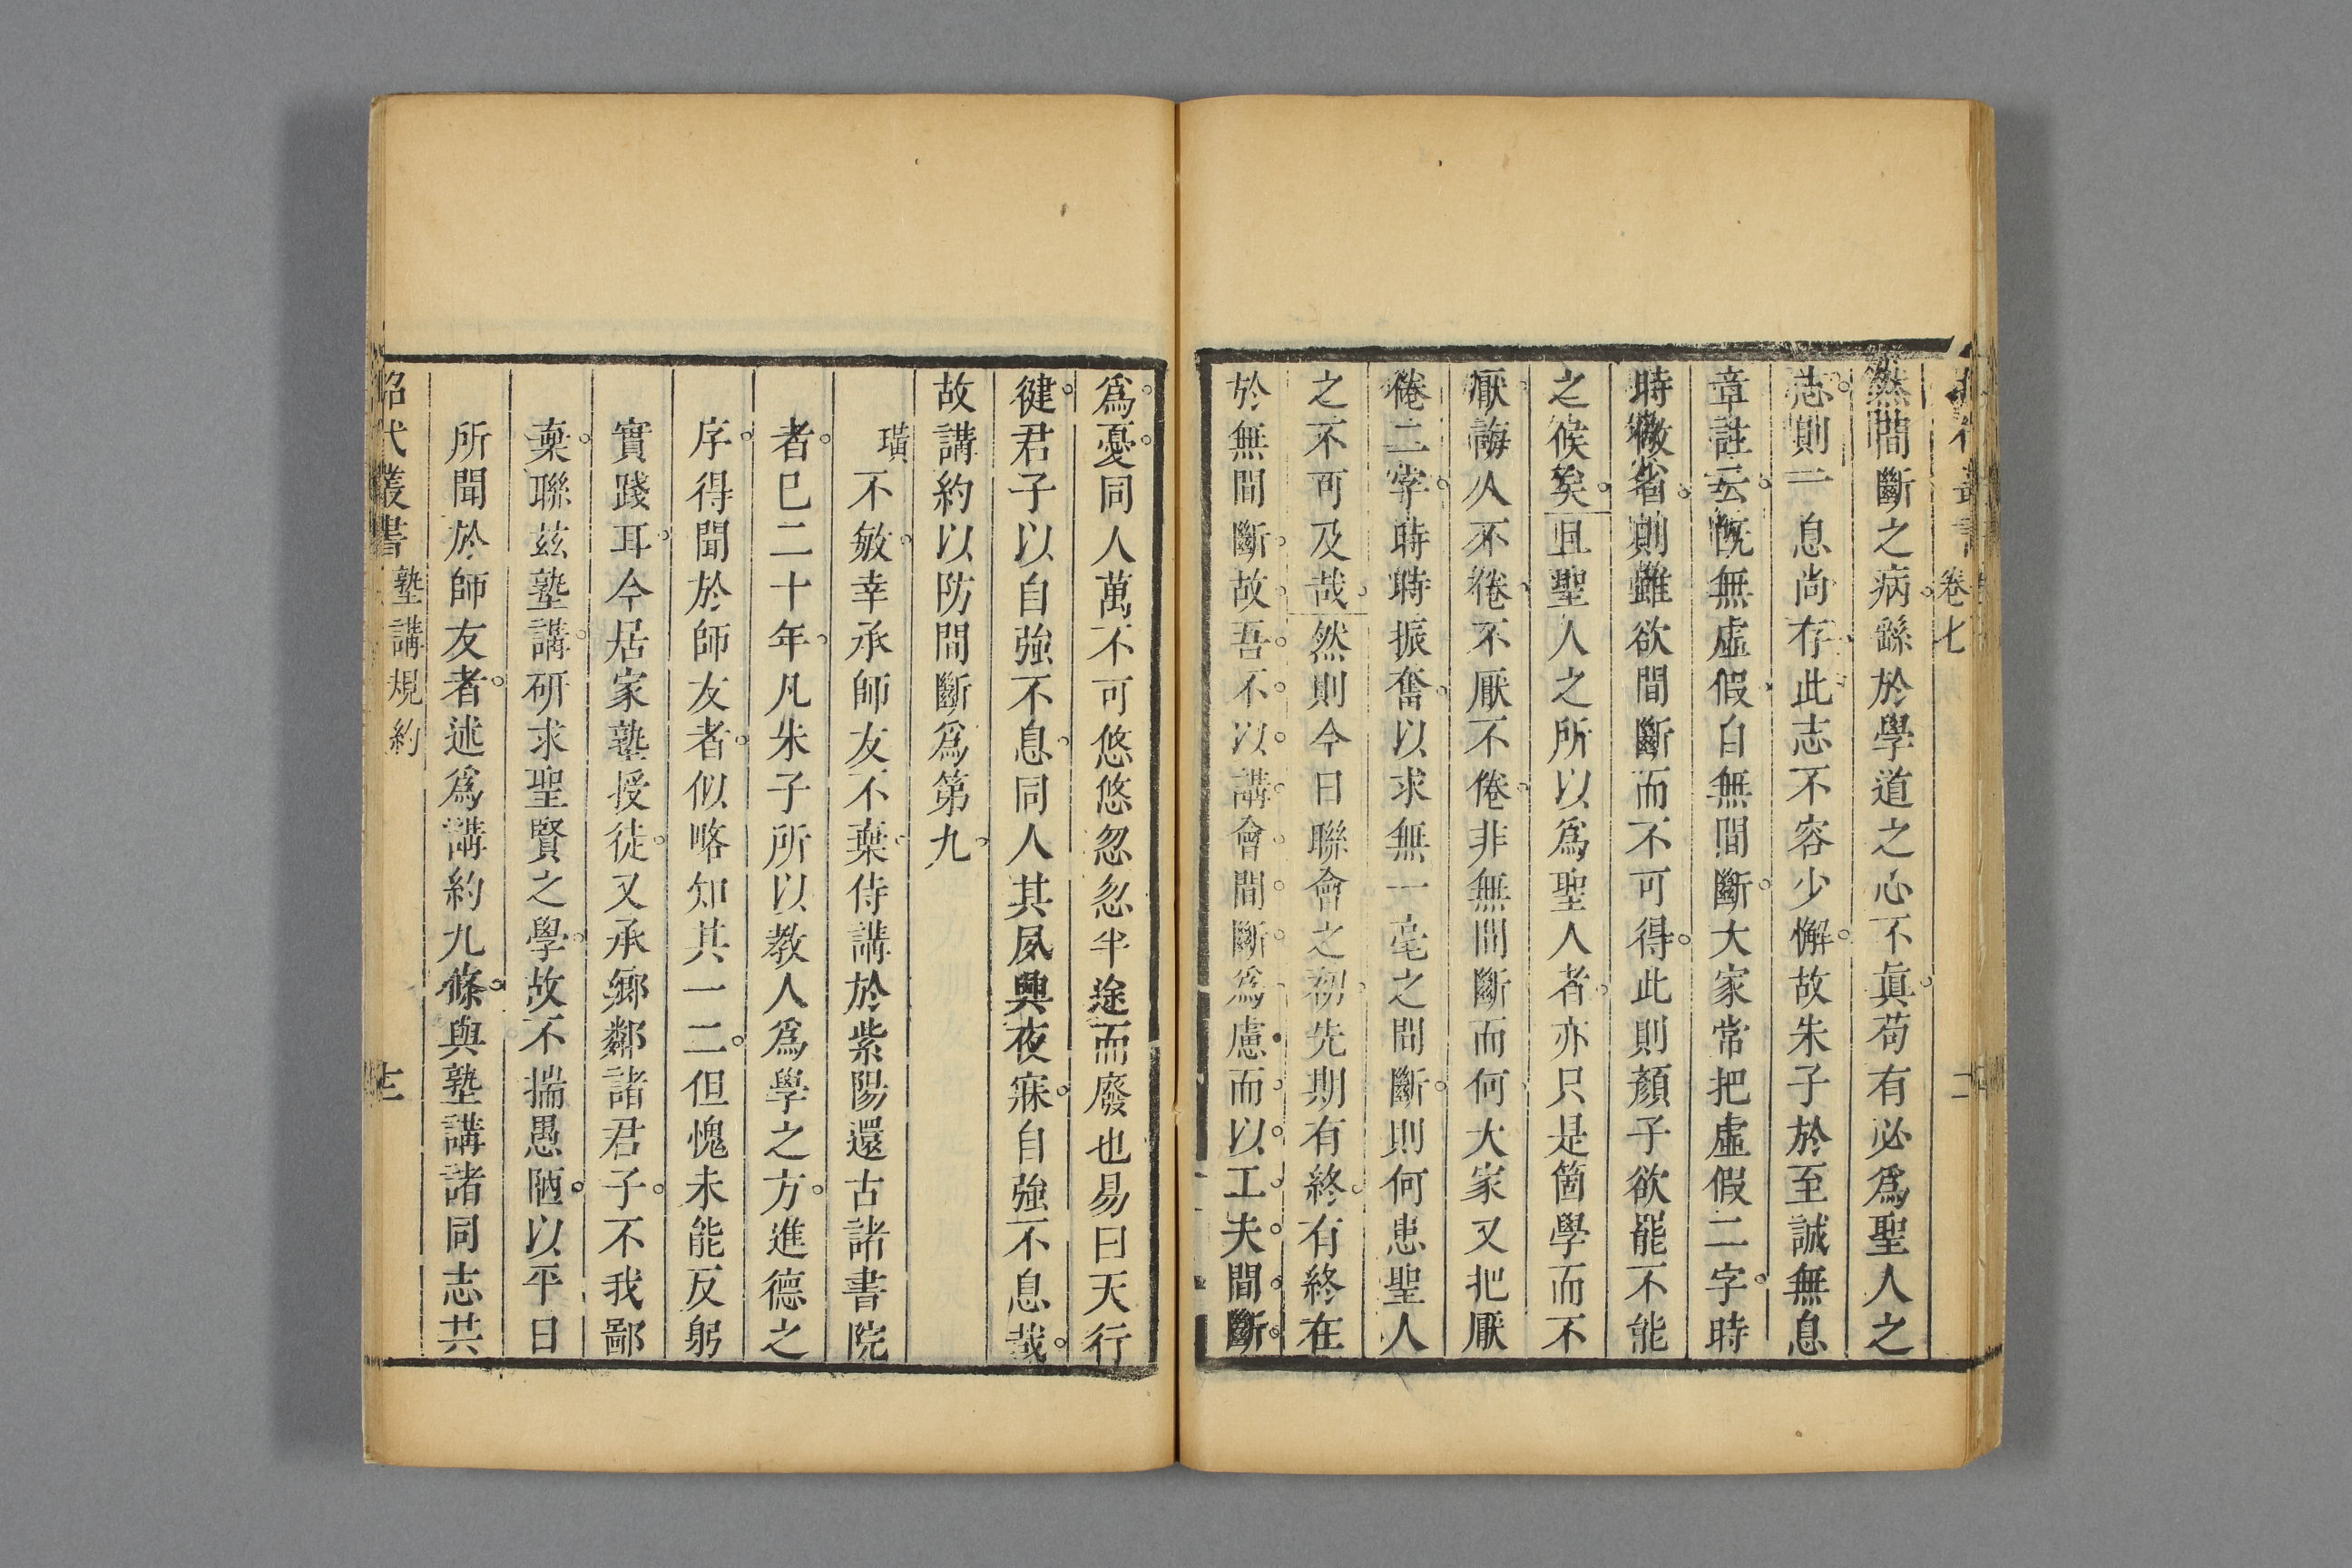 卷七
然間斷之病繇於學道之心不眞苟有必爲聖人之
志則一息尚存此志不容少懈故朱子於至誠無息
章註云既無虛假自無間斷大家常把虛假二字時
時儆省則雖欲間斷而不可得此則顏子欲罷不能
之候矣且聖人之所以爲聖人者亦只是箇學而不
厭誨人不倦不厭不倦非無間斷而何大家又把厭
倦二字時時振奮以求無一毫之間斷則何患聖人
之不可及哉然則今日聯會之初先期有終有終在
於無間斷故吾不以講會間斷爲慮而以工夫間斷
爲憂同人萬不可悠悠忽忽半途而廢也易曰天行
健君子以自強不息同人其夙興夜寐自強不息哉
故講約以防間斷爲第九
璜不敏幸承師友不棄侍講於紫陽還古諸書院
者已二十年凡朱子所以教人爲學之方進德之
序得聞於師友者似略知其一二但愧未能反躬
實踐耳今居家塾授徒又承鄉鄰諸君子不我鄙
棄聯茲塾講研求聖賢之學故不揣愚陋以平日
所聞於師友者述爲講約九條與塾講諸同志共
昭代叢書 塾講規約